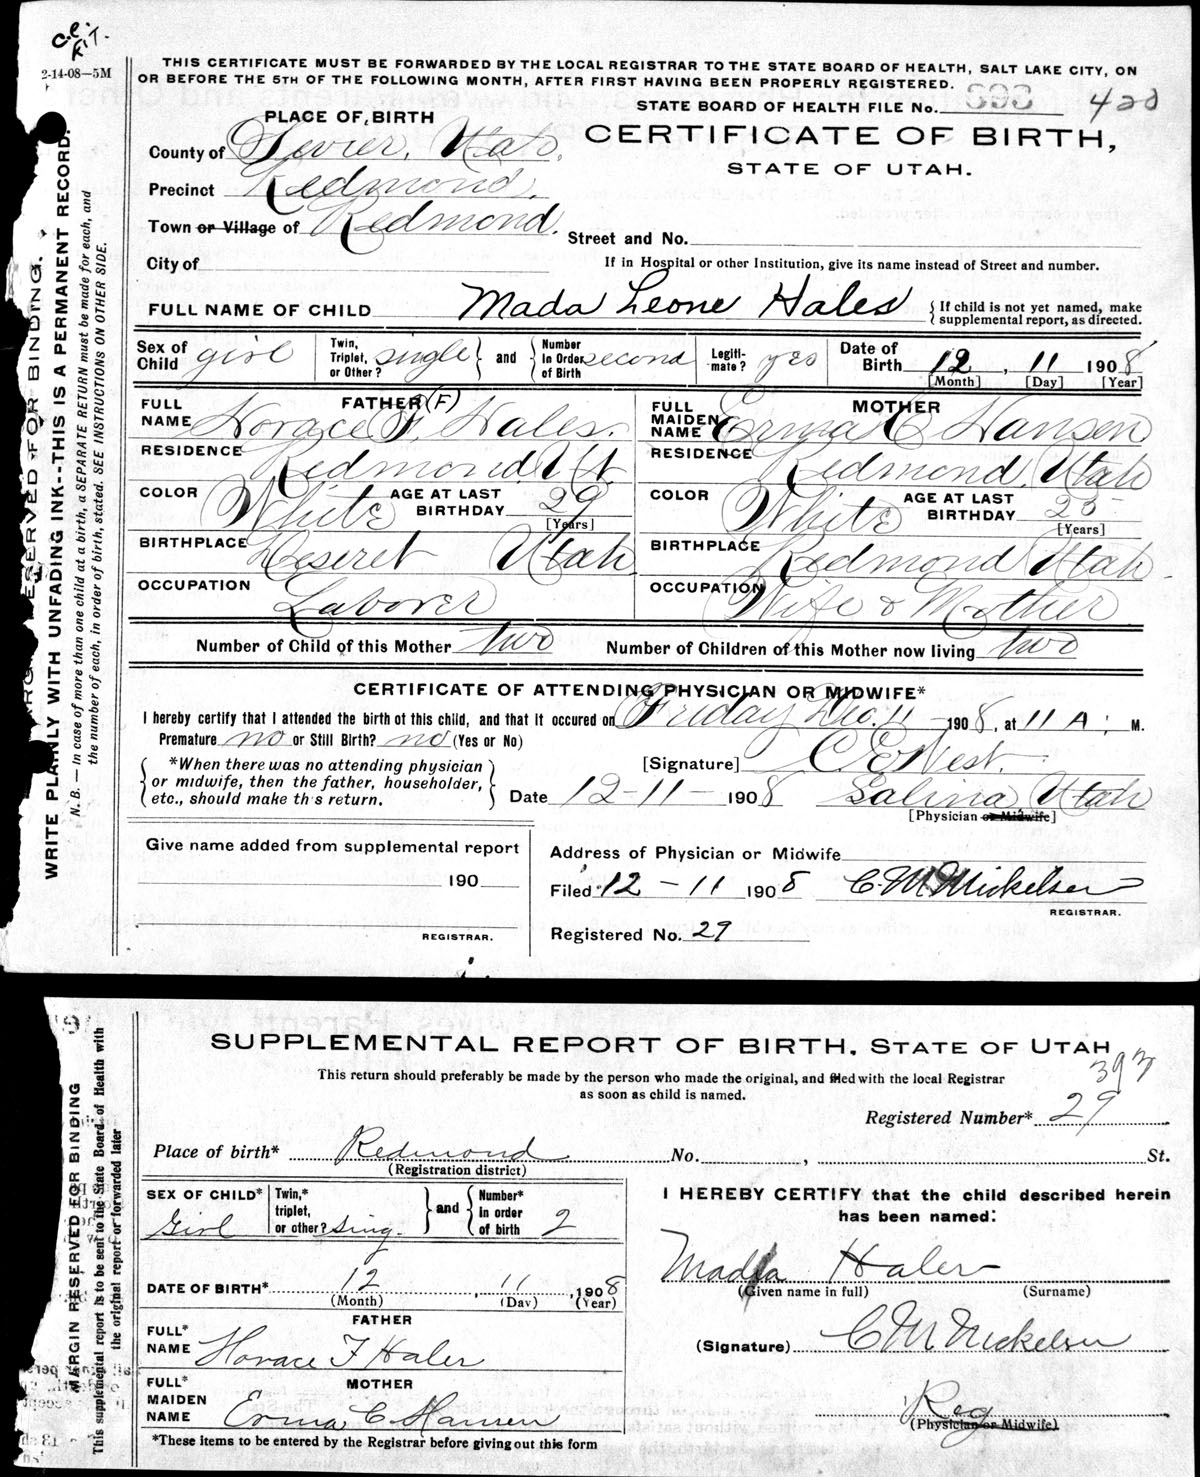 C.E.
R.T.
2-14-08—5M
THIS CERTIFICATE MUST BE FORWARDED BY THE LOCAL REGISTRAR TO THE STATE BOARD OF HEALTH, SALT LAKE CITY, ON
OR BEFORE THE 5TH OF THE FOLLOWING MONTH, AFTER FIRST HAVING BEEN PROPERLY REGISTERED.
STATE BOARD OF HEALTH FILE No. 393 420
PLACE OF BIRTH
CERTIFICATE OF BIRTH,
STATE OF UTAH.
County of Sevier, Utah.
Precinct Redmond.
Town or Village of Redmond.
Street and No.
City of
If in Hospital or other Institution, give its name instead of Street and number.
FULL NAME OF CHILD Mada Leone Hales { If child is not yet named, make
supplemental report, as directed.
Sex of Child girl Twin, Triplet, or Other? single } and { Number In Order of Birth second Legiti-mate? yes Date of Birth 12, 11 1908
[Month] [Day] [Year]
FATHER (F)
FULL NAME Horace F. Hales.
RESIDENCE Redmond, Ut.
COLOR White AGE AT LAST BIRTHDAY 29
[Years]
BIRTHPLACE Deseret Utah
OCCUPATION Laborer
MOTHER
FULL MAIDEN NAME Erma C Hansen
RESIDENCE Redmond, Utah
COLOR White AGE AT LAST BIRTHDAY 25
[Years]
BIRTHPLACE Redmond Utah.
OCCUPATION Wife & Mother
Number of Child of this Mother two Number of Children of this Mother now living two
CERTIFICATE OF ATTENDING PHYSICIAN OR MIDWIFE*
I hereby certify that I attended the birth of this child, and that it occured on Friday Dec. 11 - 1908, at 11 A. M.
Premature no or Still Birth? no (Yes or No)
{ *When there was no attending physician
or midwife, then the father, householder,
etc., should make this return. }
[Signature] C. E. West.
Date 12-11- 1908 Salina, Utah
[Physician or Midwife]
Give name added from supplemental report
190
REGISTRAR.
Address of Physician or Midwife
Filed 12-11 1908 C. M. Mickelsen
REGISTRAR.
Registered No. 29
MARGIN RESERVED FOR BINDING.
WRITE PLAINLY WITH UNFADING INK--THIS IS A PERMANENT RECORD.
N. B.— In case of more than one child at a birth, a SEPARATE RETURN must be made for each, and
the number of each, in order of birth, stated. SEE INSTRUCTIONS ON OTHER SIDE.
SUPPLEMENTAL REPORT OF BIRTH, STATE OF UTAH
393
This return should preferably be made by the person who made the original, and filed with the local Registrar
as soon as child is named.
Registered Number* 29
Place of birth* Redmond No. , St.
(Registration district)
SEX OF CHILD* Girl Twin,* triplet, or other? Sing. } and { Number* in order of birth 2
DATE OF BIRTH* 12, 11, 1908
(Month) (Day) (Year)
FATHER
FULL* NAME Horace F Hales
MOTHER
FULL* MAIDEN NAME Erma C. Hansen
*These items to be entered by the Registrar before giving out this form
I HEREBY CERTIFY that the child described herein
has been named:
Mada Hales
(Given name in full) (Surname)
(Signature) C M Mickelsen
Reg
(Physician or Midwife)
MARGIN RESERVED FOR BINDING
This supplemental report is to be sent to the State Board of Health with
the original report or forwarded later